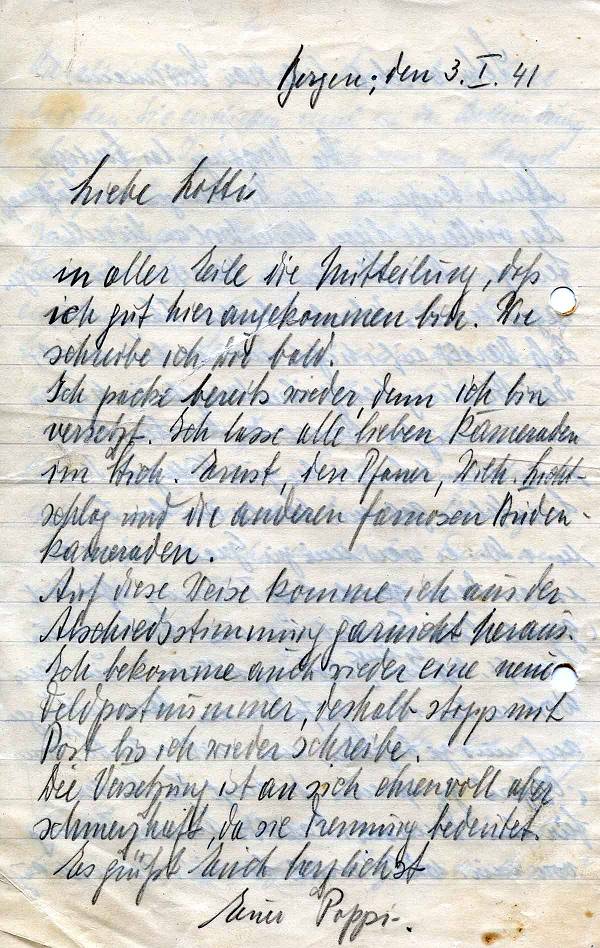 Bergen, den 3. I. 41
Liebe Lottis
in aller Eile die Mitteilung, daß
ich gut hier angekommen bin. Wie
schreibe ich bald.
Ich packe bereits wieder, denn ich bin
versetzt. Ich lasse alle lieben Kameraden
im Stich. Ernst, den Pfarrer, Wilh. Licht-
schlag und die anderen famosen Buden-
kameraden.
Auf diese Weise komme ich aus der
Abschiedsstimmung garnicht heraus.
Ich bekomme auch wieder eine neue
Feldpostnummer, deshalb stopp mit
Post bis ich wieder schreibe.
Die Versetzung ist an sich ehrenvoll aber
schmerzhaft, da sie Trennung bedeutet.
Es grüßt Euch herzlichst
Euer Poppi-.